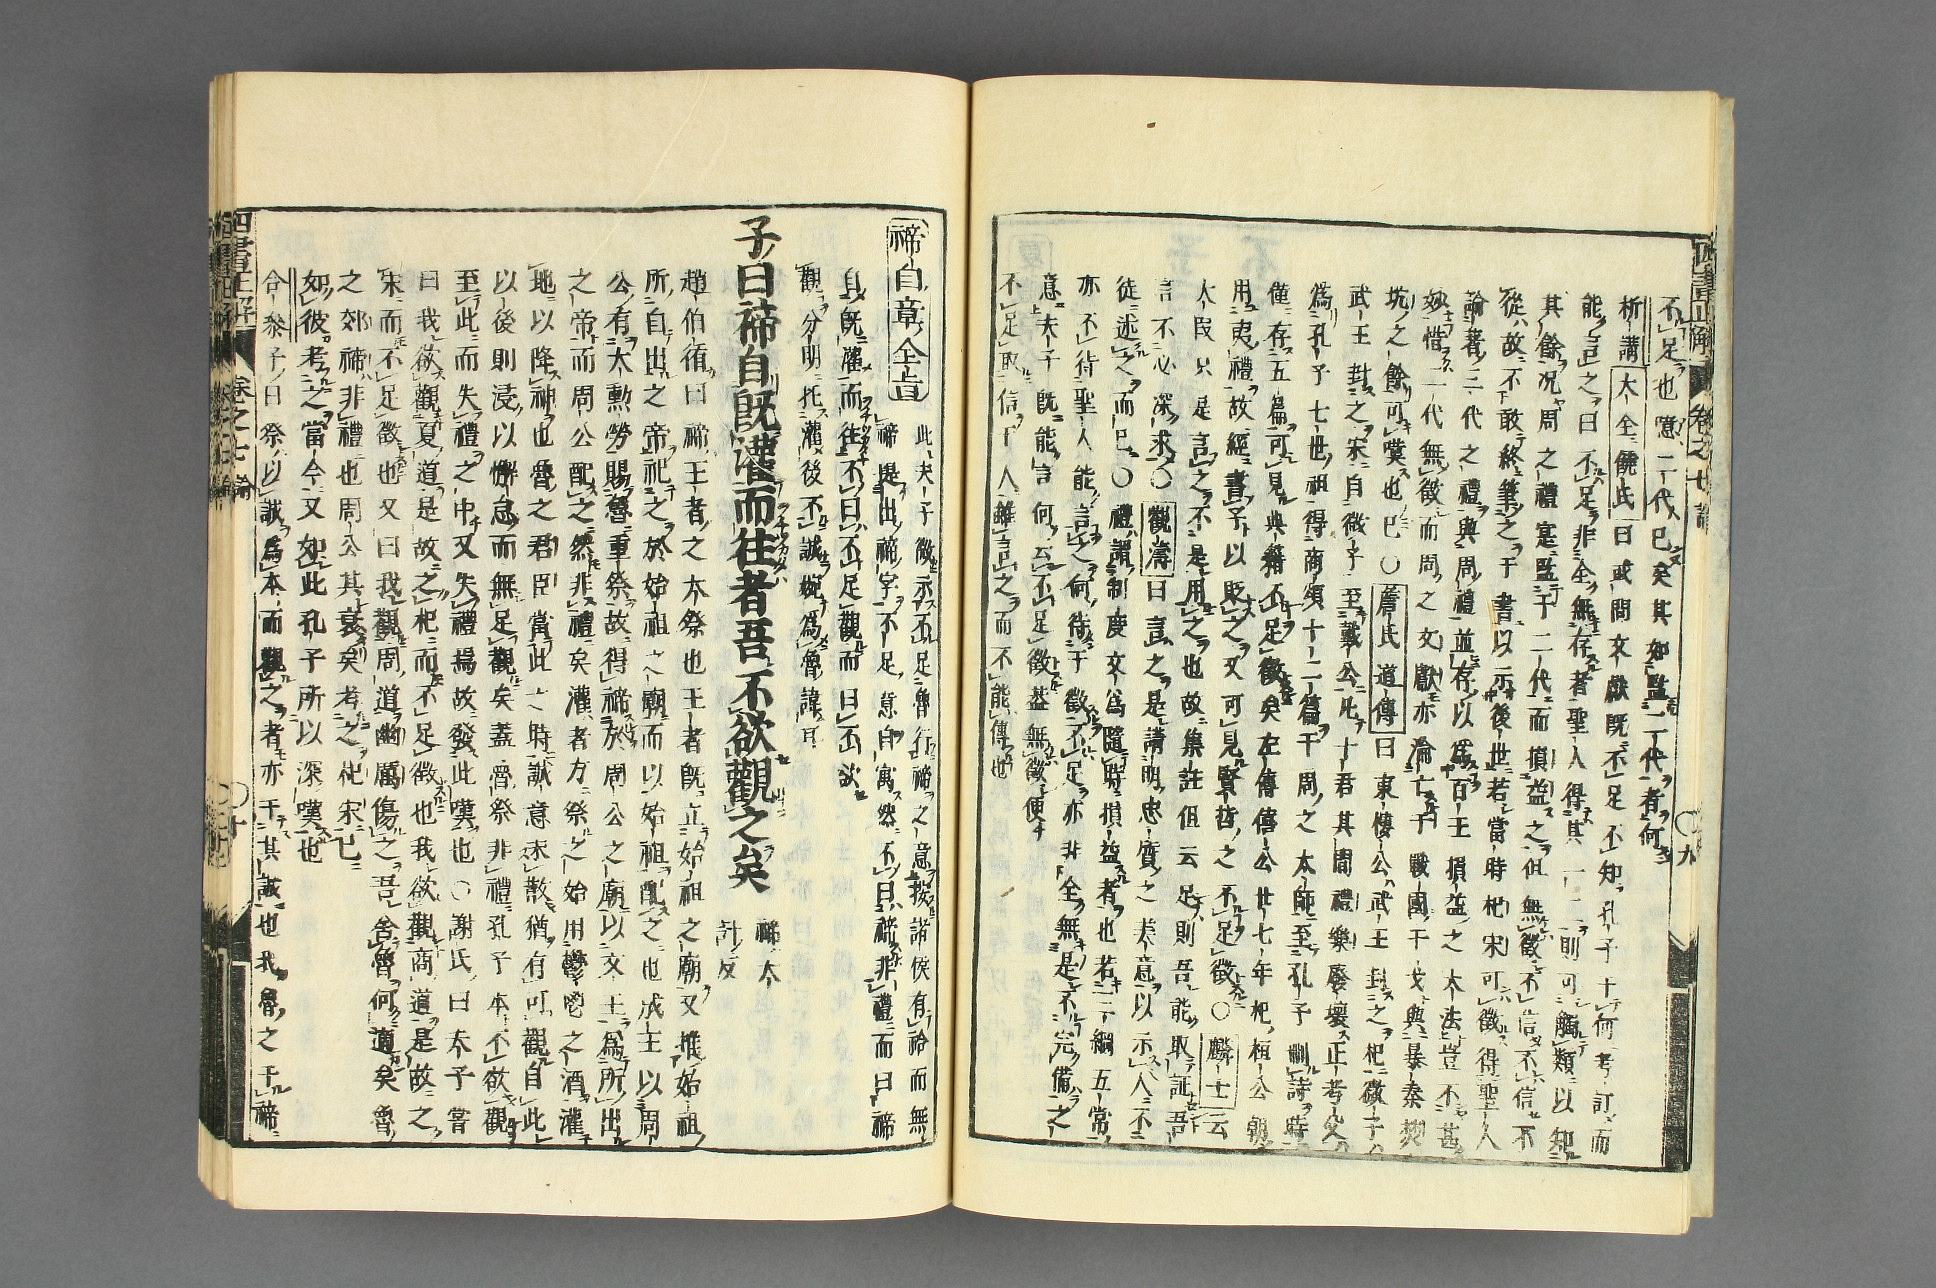 四書正解 卷之七 論 〇九
不足也意二代已矣其如監二代者何
析講 大全饒氏曰或問文獻既不足不知孔子十何考訂而
能言之曰不足非全無存者聖人得其一二則可觸類以知
其餘況周之禮寔監于二代而損益之但無徵不信不信不
從故不敢終筆之于書以示後世若當時杞宋可徵得聖人
論著三代之禮與周禮並存以爲百王損益之大法豈不甚
妙惜一代無徵而周之文獻亦淪亡于戰國干戈與暴秦焚
坑之餘可嘆也已〇 詹氏道傳 曰東樓公武王封之杞微子
武王封之宋自微子至戴公凡十君其間禮樂廢壞正考父
爲孔子七世祖得商頌十二篇于周之太師至孔子刪詩時
僅存五篇可見典籍不足徵矣左傳僖公廿七年杞桓公朝
用夷禮故經書子以貶之又可見賢哲之不足徵〇 麟士 云
太叚只是言之不是用之也故集註但云足則吾能取証吾
言不必深求〇 觀濤 曰言之是講明忠質之美意以示人不
徒述之而已〇禮謂制度文爲隨時損益者也若三綱五常
亦不待聖人能言之何待于徵不足亦非全無是不完備之
意夫子既能言何云不足徵蓋無徵便
不足取信于人雖言之而不能傳也
禘自章全旨 此夫子微示不足魯行禘之意按諸侯有祫而無
禘是出禘字不足意自寓然不曰禘非禮而曰禘
自既灌而往不曰不足觀而曰不欲
觀分明托灌後不誠婉爲魯諱耳
子曰禘自既灌而往者吾不欲觀之矣 禘大計反
趙伯循曰禘王者之大祭也王者既立始祖之廟又推始祖
所自出之帝祀之於始祖之廟而以始祖配之也成王以周
公有大勳勞賜魯重祭故得禘於周公之廟以文王爲所出
之帝而周公配之然非禮矣灌者方祭之始用鬱鬯之酒灌
地以降神也魯之君臣當此之時誠意未散猶有可觀自此
以後則浸以懈怠而無足觀矣蓋魯祭非禮孔子本不欲觀
至此而失禮之中又失禮焉故發此嘆也〇謝氏曰夫子嘗
曰我欲觀夏道是故之杞而不足徵也我欲觀商道是故之
宋而不足徵也又曰我觀周道幽厲傷之吾舍魯何適矣魯
之郊禘非禮也周公其衰矣考之杞宋已
如彼考之當今又如此孔子所以深嘆也
合參子曰祭以誠爲本而觀之者亦于其誠也我魯之于禘
四書正解 卷之七 論 〇十